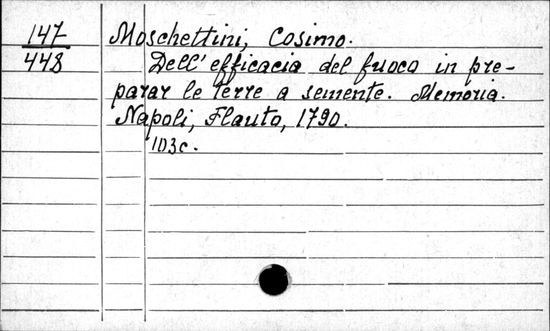 147 Moschettini, Cosimo.
448 Dell' efficacia del fuoco in pre-
parar le terre a semente. Memoria.
Napoli, Flauto, 1790.
103c.